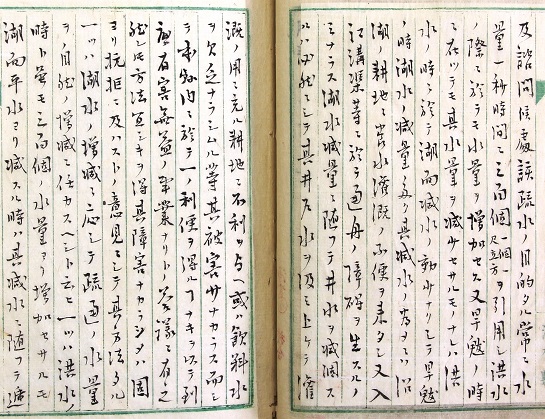 及諮問候處該疏水ノ目的タル常ニ水
量一秒時間ニ三百個一個ハ一尺立方ヲ引用シ洪水
ノ際ニ於テモ水量ヲ増加セス又旱魃ノ時
ニ在ツテモ其水量ヲ減少セサルモノナレハ洪
水ノ時ニ於テ湖面減水ノ効少ナリシテ旱魃
ノ時湖水ノ減量多ク其減水ノ為メニハ沿
湖耕地ニ養水灌漑ノ不便ヲ来タシ又入
江溝渠等ニ於テ通舟ノ障碍ヲ生スルノ
ミナラス湖水減量ニ随フテ井水ヲ減個ス
ルハ必然ニシテ其井戸水ヲ汲ミ上ケテ灌
漑ノ用ニ充ル耕地ニ不利ヲ与ヘ或ハ飲料水
ヲ欠乏ナラシムル等其被害少ナカラス而シ
テ本縣内ニ於テ一ノ利便ヲ得ルコナキヲ以テ到
底有害無益ノ事業ナリ若様ニ有之
然シモ方法宜シキヲ得其障害ナカラシメハ固
ヨリ抗拒ニ及ハストノ意見ニシテ其方法タル
一ツハ湖水ノ増減ニ応シテ疏通ノ水量
ヲ自然ノ増減ニ任カスヘシト云ヒ一ツハ洪水ノ
時ト雖モ三百個ノ水量ヨリ増加セサルモ
湖面平水ヨリ減スル時ハ其減水ニ随フテ逓